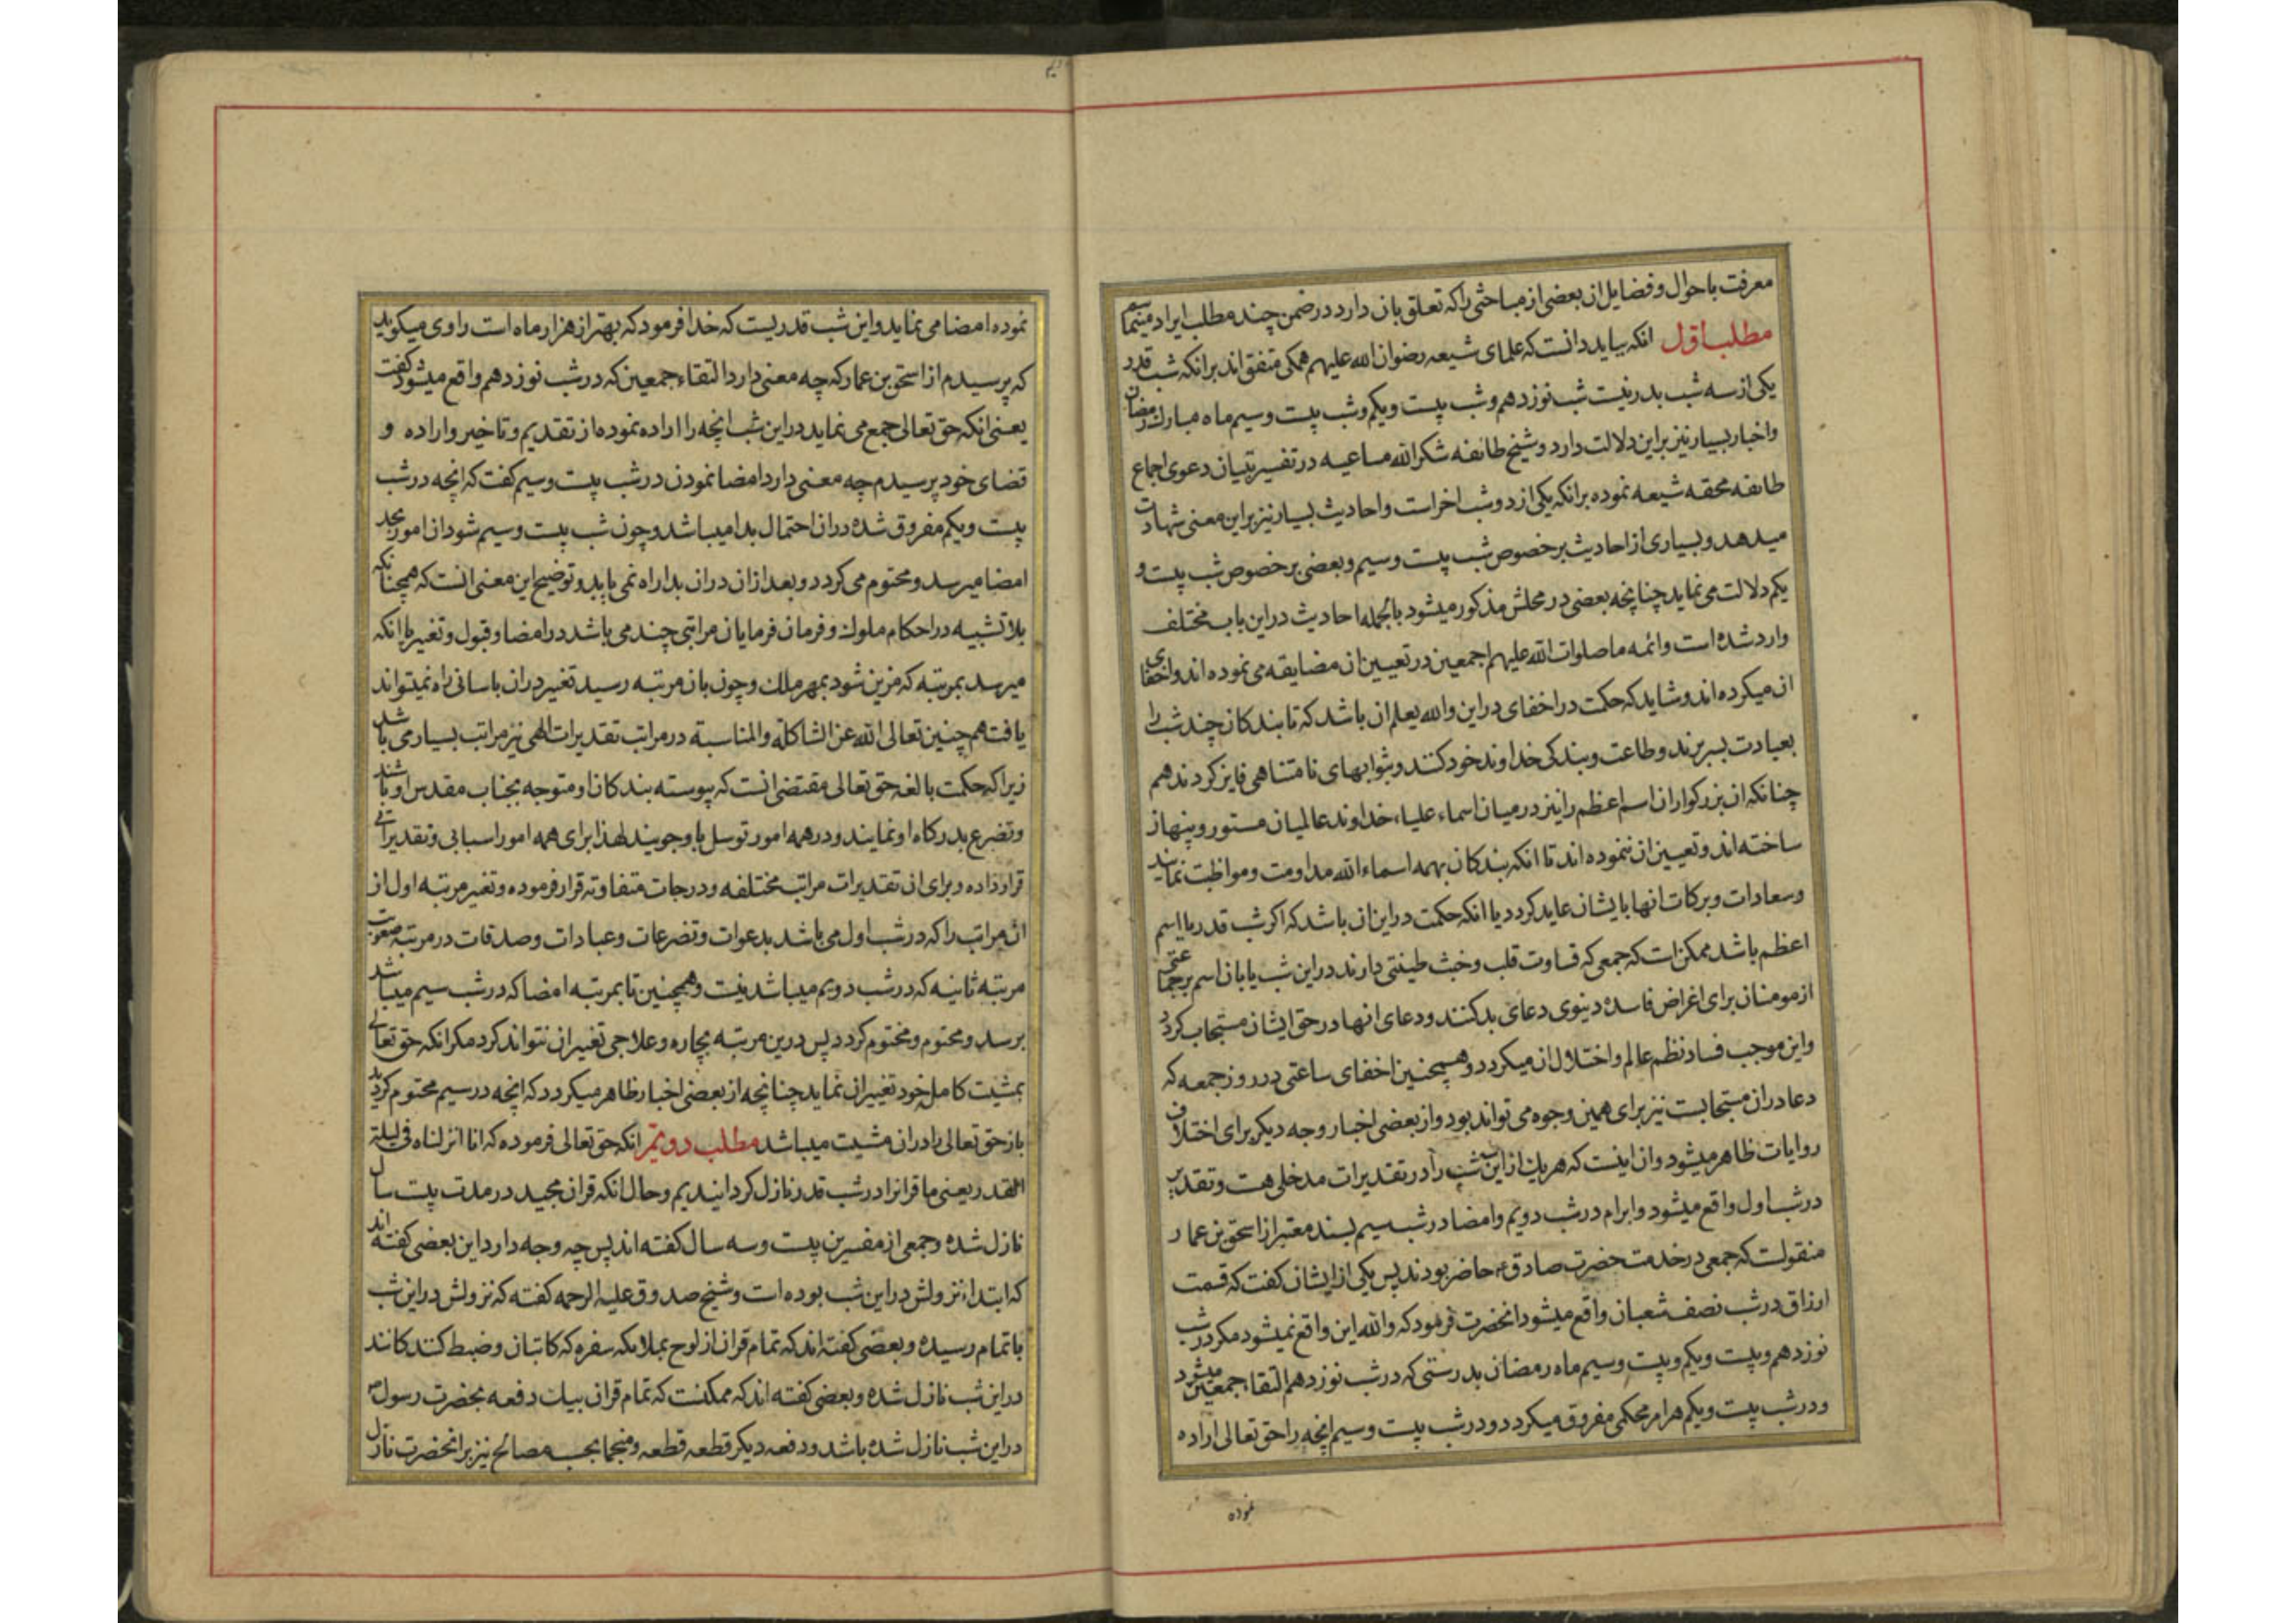 معرفت باحوال و فضایل ان بعضی از مباحثی را که تعلق بان دارد در ضمن چند مطلب ایراد مینمائیم
مطلب اول انکه بباید دانست که علمای شیعه رضوان الله علیهم همکی متفق اند برانکه شب قدر
یکی از سه شب بدر نیست شب نوزدهم و شب بیست ویکم و شب بیست و سیم ماه مبارک رمضان
و اخبار بسیار نیز براین دلالت دارد و شیخ طائفه شکر الله مساعیه در تفسیر تبیان دعوی اجماع
طائفه محقه شیعه نموده برانکه یکی از دو شب اخراست و احادیث بسیار نیز براین معنی شهادت
میدهد و بسیاری از احادیث بر خصوص شب بیست و سیم و بعضی بر خصوص شب بیست و
یکم دلالت می نماید چنانچه بعضی در محلش مذکور میشود بالجمله احادیث دراین باب مختلف
وارد شده است و ائمه ما صلوات الله علیهم اجمعین در تعیین ان مضایقه می نموده اند و اخفای
ان میکرده اند و شاید که حکمت در اخفای دراین والله یعلم ان باشد که تا بندکان چند شب را
بعبادت بسر برند و طاعت و بندکی خداوند خود کنند و بثوابهای نامتناهی فایز کردند هم
چنانکه ان بزرکواران اسم اعظم را نیز در میان اسماء علیاء خداوند عالمیان مستور و پنهان
ساخته اند و تعیین ان ننموده اند تا انکه بندکان بهمه اسماء الله مداومت و مواظبت نمایند
و سعادات و برکات انها بایشان عاید کردد یا انکه حکمت دراین ان باشد که اکر شب قدر یا اسم
اعظم باشد ممکن است که جمعی که قساوت قلب و خبث طینتی دارند دراین شب یا بان اسم بر جماعتی
از مومنان برای اغراض فاسده دینوی دعای بد کنند و دعای انها در حق ایشان مستجاب کردد
و این موجب فساد نظم عالم و اختلال ان میکردد و همچنین اخفای ساعتی در روز جمعه که
دعا دران مستجابست نیز برای همین وجوه می تواند بود و از بعضی اخبار وجه دیکر برای اختلاف
روایات ظاهر میشود و ان اینست که هریک از این شب را در تقدیرات مدخلی هست و تقدیر
در شب اول واقع میشود و ابرام در شب دویم و امضا در شب سیم بسند معتبر از اسحق بن عمار
منقولست که جمعی در خدمت حضرت صادق ع حاضر بودند پس یکی از ایشان کفت که قسمت
ارزاق در شب نصف شعبان واقع میشود انحضرت فرمود که والله این واقع نمیشود مکر در شب
نوزدهم و بیست ویکم و بیست و سیم ماه رمضان بدرستی که در شب نوزدهم التقاء جمعین میشود
و در شب بیست ویکم هر امر محکمی مفروق میکردد و در شب بیست و سیم انچه را حق تعالی اراده
نموده
نموده امضا می نماید و این شب قدریست که خدا فرمود که بهتر از هزار ماه است راوی میکوید
که پرسیدم از اسحق بن عمار که چه معنی دارد التقاء جمعین که در شب نوزدهم واقع میشود کفت
یعنی انکه حق تعالی جمع می نماید دراین شب انچه را اراده نموده از تقدیم و تاخیر و اراده و
قضای خود پرسیدم چه معنی دارد امضا نمودن در شب بیست و سیم کفت که انچه در شب
بیست ویکم مفروق شده دران احتمال بدا میباشد و چون شب بیست و سیم شود ان امور بحد
امضا میرسد و محتوم می کردد و بعد ازان دران بدا راه نمی یابد و توضیح این معنی انست که همچنانکه
بلا تشبیه در احکام ملوک و فرمان فرمایان مراتبی چند می باشد در امضا و قبول و تغیر تا انکه
میرسد بمرتبه که مزین شود بمهر ملک و چون بان مرتبه رسید تغیر دران باسانی راه نمیتواند
یافت هم چنین تعالی الله عن المشاکلة والمناسبة در مراتب تقدیرات الهی نیز مراتب بسیار می باشد
زیرا که حکمت بالغه حق تعالی مقتضی انست که پیوسته بندکان او متوجه بجناب مقدس او باشند
و تضرع بدرکاه او نمایند و در همه امور توسل باو جویند لهذا برای همه امور اسبابی و تقدیراتی
قرار داده و برای ان تقدیرات مراتب مختلفه و درجات متفاوته قرار فرموده و تغیر مرتبه اول از
ان مراتب را که در شب اول می باشد بدعوات و تضرعات و عبادات و صدقات در مرتبه صعوبت
مرتبه ثانیه که در شب دویم میباشد نیست و همچنین تا بمرتبه امضا که در شب سیم میباشد
برسد و محتوم و مختوم کردد پس درین مرتبه بچاره و علاجی تغیر ان نتواند کرد مکر انکه حق تعالی
بمشیت کامل خود تغییر ان نماید چنانچه از بعضی اخبار ظاهر میکردد که انچه در سیم محتوم کردید
باز حق تعالی را دران مشیت میباشد مطلب دویم انکه حق تعالی فرموده که انا انزلناه فی لیلة
القدر یعنی ما قرانرا در شب قدر نازل کردانیدیم و حال انکه قران مجید در مدت بیست سال
نازل شده و جمعی از مفسرین بیست و سه سال کفته اند پس چه وجه دارد این بعضی کفته اند
که ابتداء نزولش دراین شب بوده است و شیخ صدوق علیه الرحمه کفته که نزولش دراین شب
باتمام رسیده و بعضی کفته اند که تمام قران از لوح بملائکه سفره که کاتبان و ضبط کنندکانند
دراین شب نازل شده و بعضی کفته اند که ممکنست که تمام قران بیک دفعه بحضرت رسول ص
دراین شب نازل شده باشد و دفعه دیکر قطعه قطعه و منجما بحسب مصالح نیز برانحضرت نازل